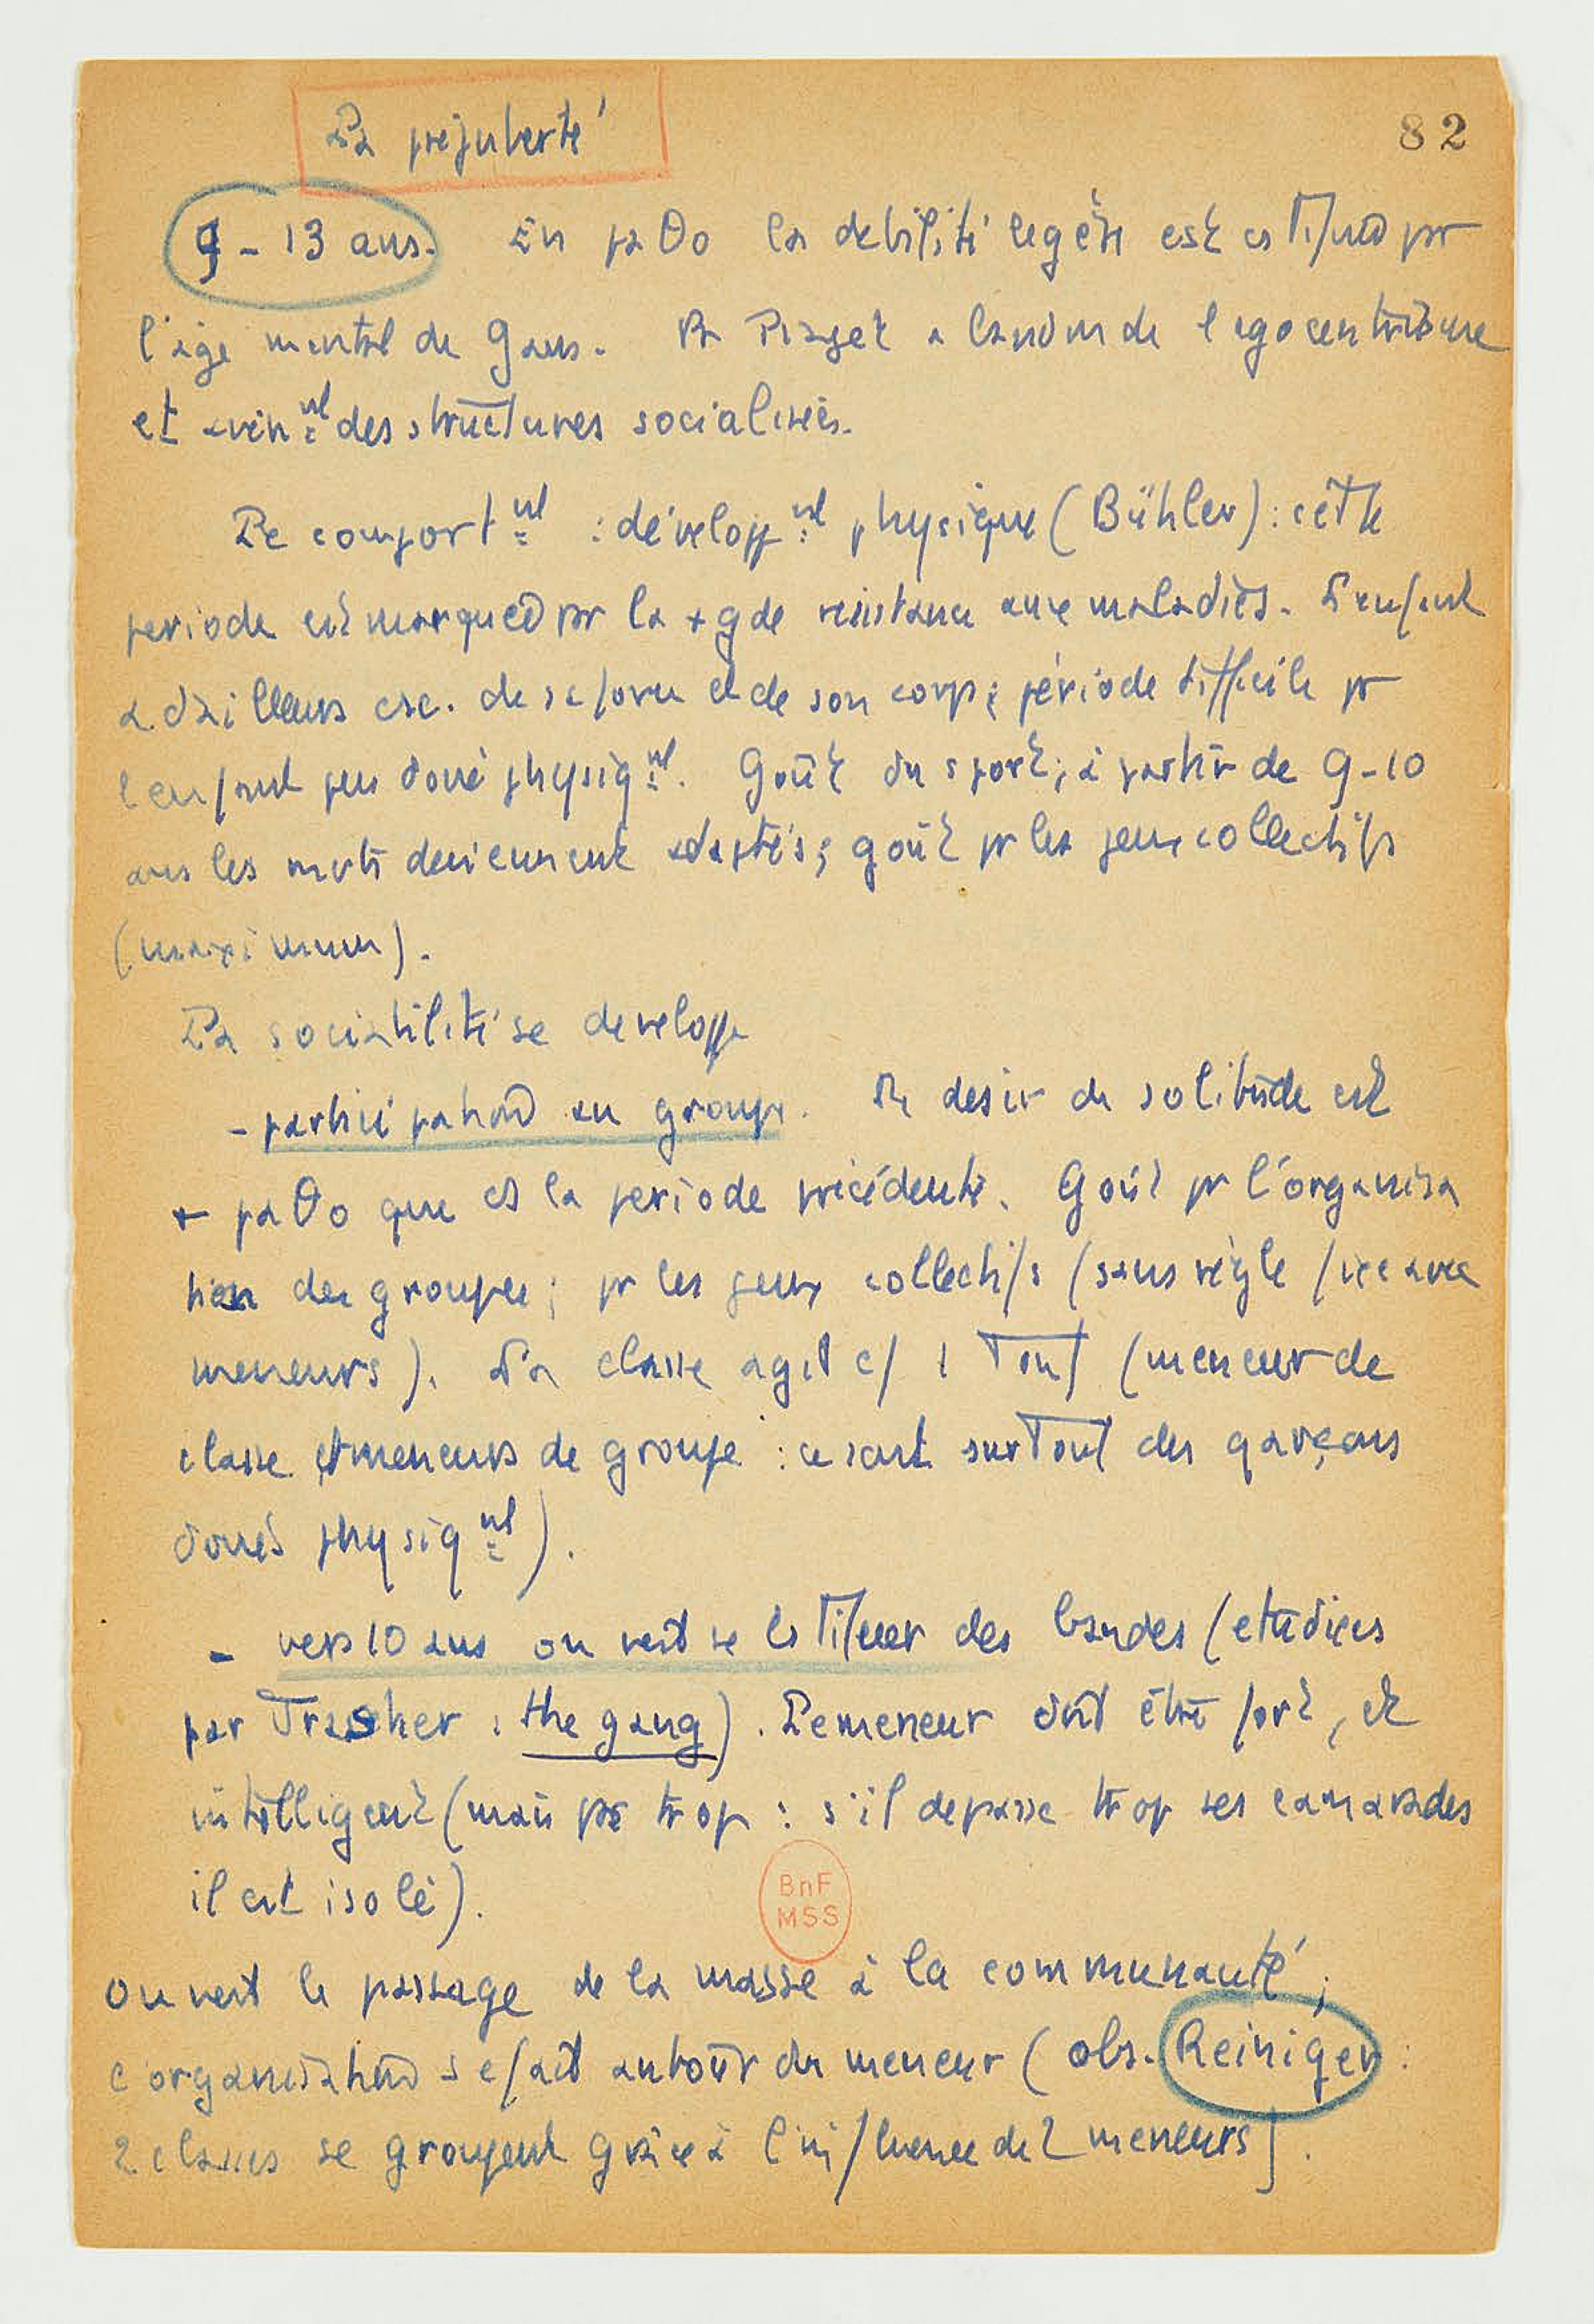 La prépuberté
82
9 - 13 ans. En paθo la debilité legère est par
l'âge mental de 9 ans. Pr Piaget abandon de l'egocentrisme
et avèn^nt des structures socialisées.
Le comport^nt : développ^nt physique (Bühler) : cette
periode est marquée par la + gde résistance aux maladies. L'enfant
a d'ailleurs csc. de sa force et de son corps ; période difficile pr
l'enfant peu doué physiq^nt. Goût du sport ; à partir de 9-10
ans les mvts deviennent adaptés ; goût pr les jeux collectifs
(maximum).
La sociabilité se developpe
- participation au groupe. Le desir de solitude est
+ paθo que ds la periode précédente. Goût pr l'organisa
tion des groupes ; pr les jeux collectifs (sans règle fixe avec
meneurs). La classe agit c/ 1 Tout (meneur de
classe et meneurs de groupe : ce sont surTout des garçons
doués physiq^nt).
- vers 10 ans on voit se des bandes (etudiées
par Trasher : the gang). Le meneur doit être fort, et
intelligent (mais pas trop : s'il depasse trop ses camarades
il est isolé).
BnF
MSS
On voit le passage de la masse à la communauté ;
l'organisation se fait autour du meneur (obs. Reiniger :
2 classes se groupent grâce à l'influence de 2 meneurs).